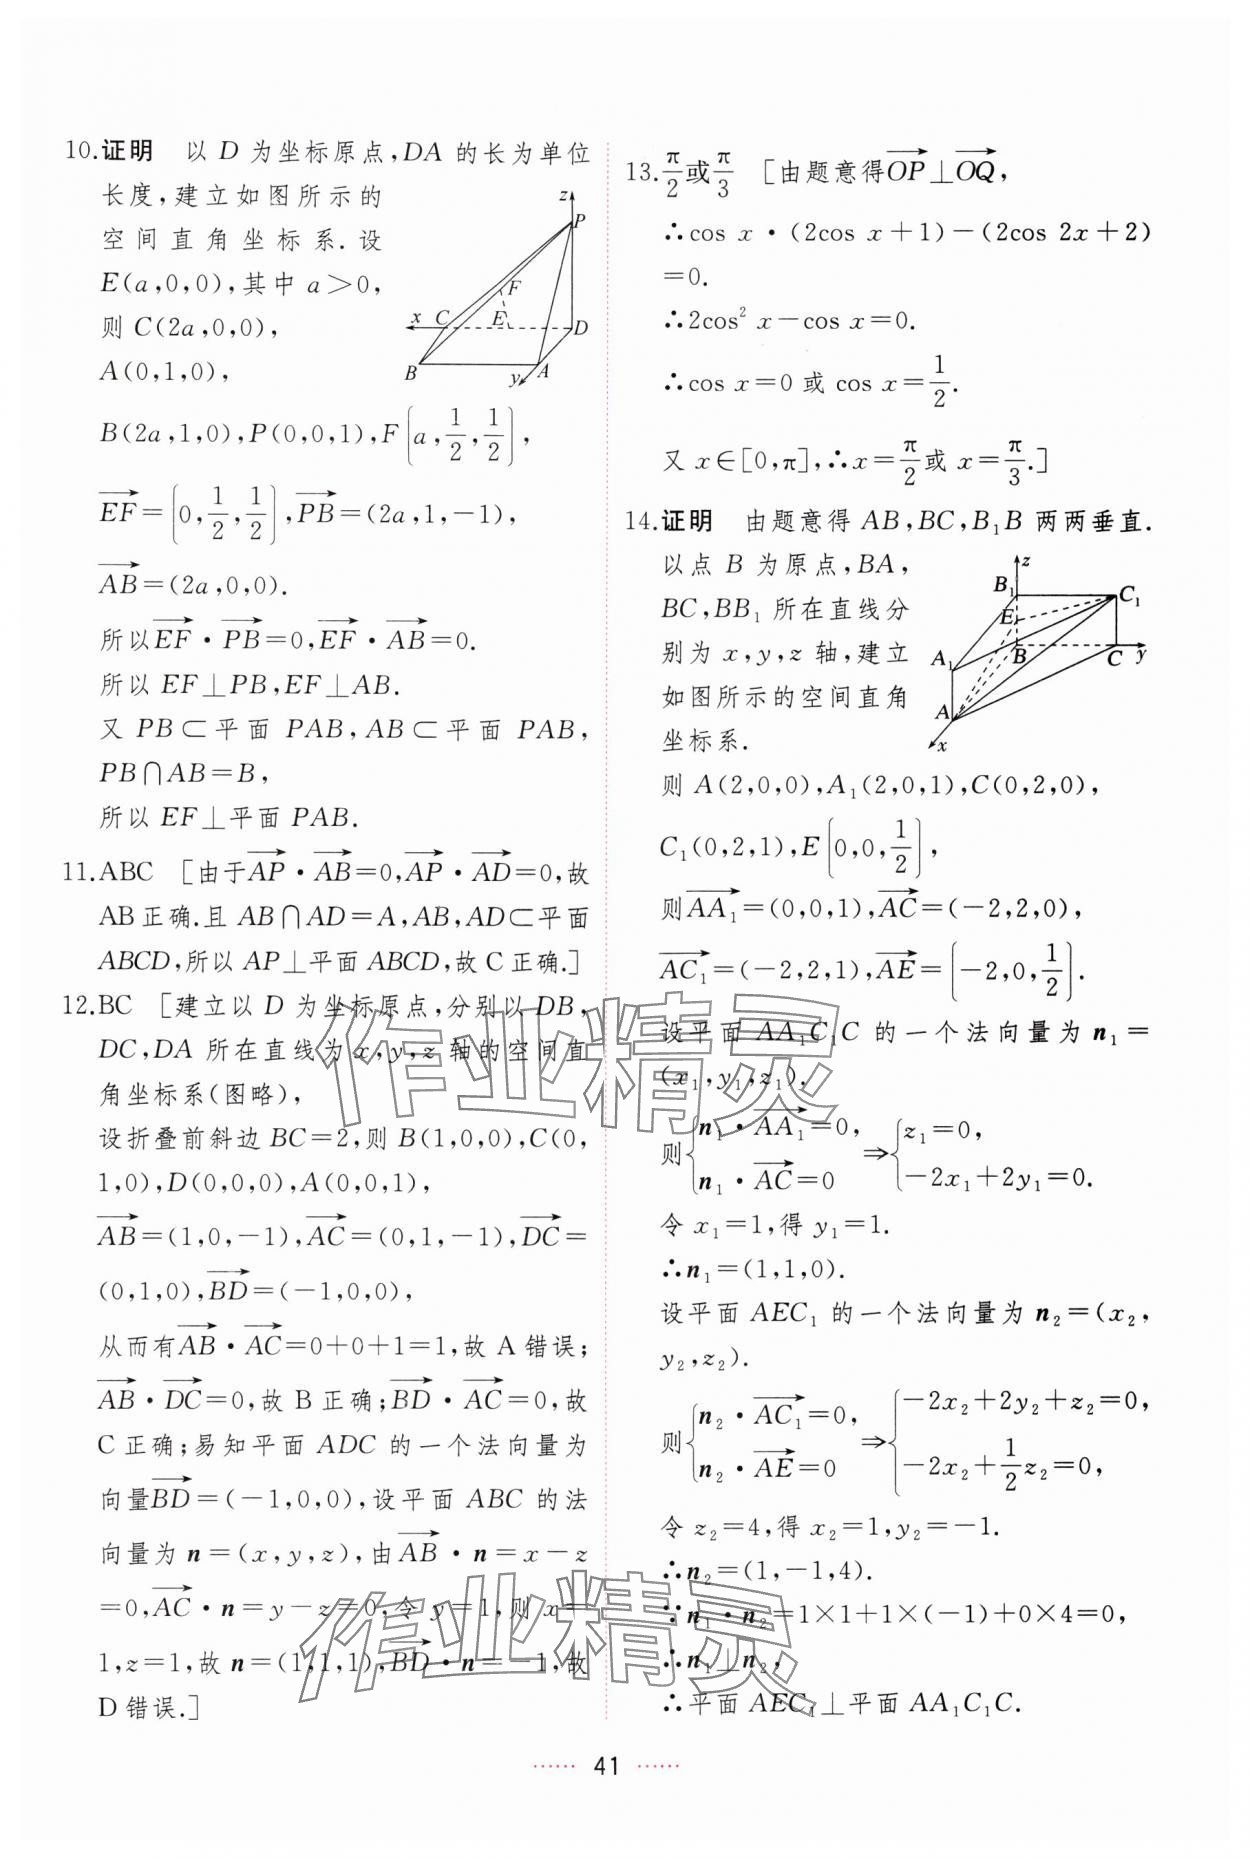 10.证明 以 D 为坐标原点,DA 的长为单位
长度,建立如图所示的
空间直角坐标系.设
E(a,0,0),其中 a>0,
则 C(2a,0,0),
A(0,1,0),
z P F x C E D B y A
B(2a,1,0),P(0,0,1),F(a,1/2,1/2),
→EF=(0,1/2,1/2),→PB=(2a,1,-1),
→AB=(2a,0,0).
所以→EF·→PB=0,→EF·→AB=0.
所以 EF⊥PB,EF⊥AB.
又 PB⊂平面 PAB,AB⊂平面 PAB,
PB∩AB=B,
所以 EF⊥平面 PAB.
11.ABC [由于→AP·→AB=0,→AP·→AD=0,故
AB正确.且 AB∩AD=A,AB,AD⊂平面
ABCD,所以 AP⊥平面 ABCD,故 C 正确.]
12.BC [建立以 D 为坐标原点,分别以 DB,
DC,DA 所在直线为 x,y,z 轴的空间直
角坐标系(图略),
设折叠前斜边 BC=2,则 B(1,0,0),C(0,
1,0),D(0,0,0),A(0,0,1),
→AB=(1,0,-1),→AC=(0,1,-1),→DC=
(0,1,0),→BD=(-1,0,0),
从而有→AB·→AC=0+0+1=1,故 A 错误;
→AB·→DC=0,故 B 正确;→BD·→AC=0,故
C 正确;易知平面 ADC 的一个法向量为
向量→BD=(-1,0,0),设平面 ABC 的法
向量为 n=(x,y,z),由→AB·n=x-z
=0,→AC·n=y-z=0,令 y=1,则 x=
1,z=1,故 n=(1,1,1),→BD·n=-1,故
D 错误.]
13.π/2或π/3 [由题意得→OP⊥→OQ,
∴cos x·(2cos x+1)-(2cos 2x+2)
=0.
∴2cos² x-cos x=0.
∴cos x=0 或 cos x=1/2.
又 x∈[0,π],∴x=π/2或 x=π/3.]
14.证明 由题意得 AB,BC,B₁B 两两垂直.
以点 B 为原点,BA,
BC,BB₁ 所在直线分
别为 x,y,z 轴,建立
如图所示的空间直角
坐标系.
z B₁ C₁ E A₁ B C y A x
则 A(2,0,0),A₁(2,0,1),C(0,2,0),
C₁(0,2,1),E(0,0,1/2),
则→AA₁=(0,0,1),→AC=(-2,2,0),
→AC₁=(-2,2,1),→AE=(-2,0,1/2).
设平面 AA₁C₁C 的一个法向量为 n₁=
(x₁,y₁,z₁),
则{n₁·→AA₁=0, n₁·→AC=0 ⇒{z₁=0, -2x₁+2y₁=0.
令 x₁=1,得 y₁=1.
∴n₁=(1,1,0).
设平面 AEC₁ 的一个法向量为 n₂=(x₂,
y₂,z₂).
则{n₂·→AC₁=0, n₂·→AE=0 ⇒{-2x₂+2y₂+z₂=0, -2x₂+1/2z₂=0,
令 z₂=4,得 x₂=1,y₂=-1.
∴n₂=(1,-1,4).
∵n₁·n₂=1×1+1×(-1)+0×4=0,
∴n₁⊥n₂,
∴平面 AEC₁⊥平面 AA₁C₁C.
作业精灵
作业精灵
······ 41 ······